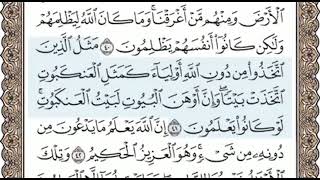 ٱلْأَرْضَ وَمِنْهُم مَّنْ أَغْرَقْنَا ۚ وَمَا كَانَ ٱللَّهُ لِيَظْلِمَهُمْ
وَلَٰكِن كَانُوٓا۟ أَنفُسَهُمْ يَظْلِمُونَ ٤٠ مَثَلُ ٱلَّذِينَ
ٱتَّخَذُوا۟ مِن دُونِ ٱللَّهِ أَوْلِيَآءَ كَمَثَلِ ٱلْعَنكَبُوتِ
ٱتَّخَذَتْ بَيْتًا ۖ وَإِنَّ أَوْهَنَ ٱلْبُيُوتِ لَبَيْتُ ٱلْعَنكَبُوتِ ۖ
لَوْ كَانُوا۟ يَعْلَمُونَ ٤١ إِنَّ ٱللَّهَ يَعْلَمُ مَا يَدْعُونَ مِن
دُونِهِۦ مِن شَىْءٍ ۚ وَهُوَ ٱلْعَزِيزُ ٱلْحَكِيمُ ٤٢ وَتِلْكَ